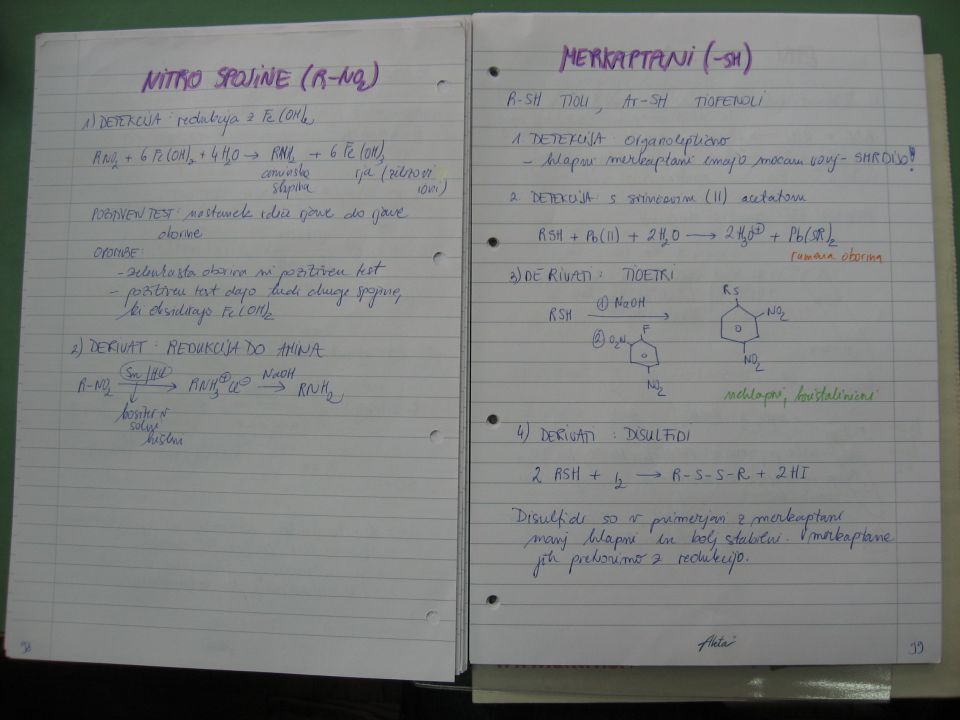 NITRO SPOJINE (R-NO₂)
1) DETEKCIJA: redukcija z Fe(OH)₂
RNO₂ + 6 Fe(OH)₂ + 4H₂O → RNH₂ + 6 Fe(OH)₃
aminska rja (železovi
stopina ioni)
POZITIVEN TEST: nastanek rdeče rjave do rjave
oborine
OPOMBE:
- zelenkasta oborina ni pozitiven test
- pozitiven test dajo tudi druge spojine,
ki oksidirajo Fe(OH)₂
2) DERIVAT: REDUKCIJA DO AMINA
R-NO₂ Sn/HCl → RNH₃⊕Cl⊖ NaOH → RNH₂
kositer v
solni
kislini
98
MERKAPTANI (-SH)
R-SH TIOLI, Ar-SH TIOFENOLI
1. DETEKCIJA: organoleptično
- hlapni merkaptani imajo močan vonj - SMRDIJO!
2. DETEKCIJA: s svinčevim (II) acetatom
RSH + Pb(II) + 2H₂O → 2H₃O⊕ + Pb(SR)₂
rumena oborina
3) DERIVATI: TIOETRI
RSH ① NaOH →
② O₂N F NO₂
RS NO₂ NO₂
nehlapni, kristalinični
4) DERIVATI: DISULFIDI
2 RSH + I₂ → R-S-S-R + 2HI
Disulfidi so v primerjavi z merkaptani
manj hlapni in bolj stabilni. V merkaptane
jih pretvorimo z redukcijo.
99